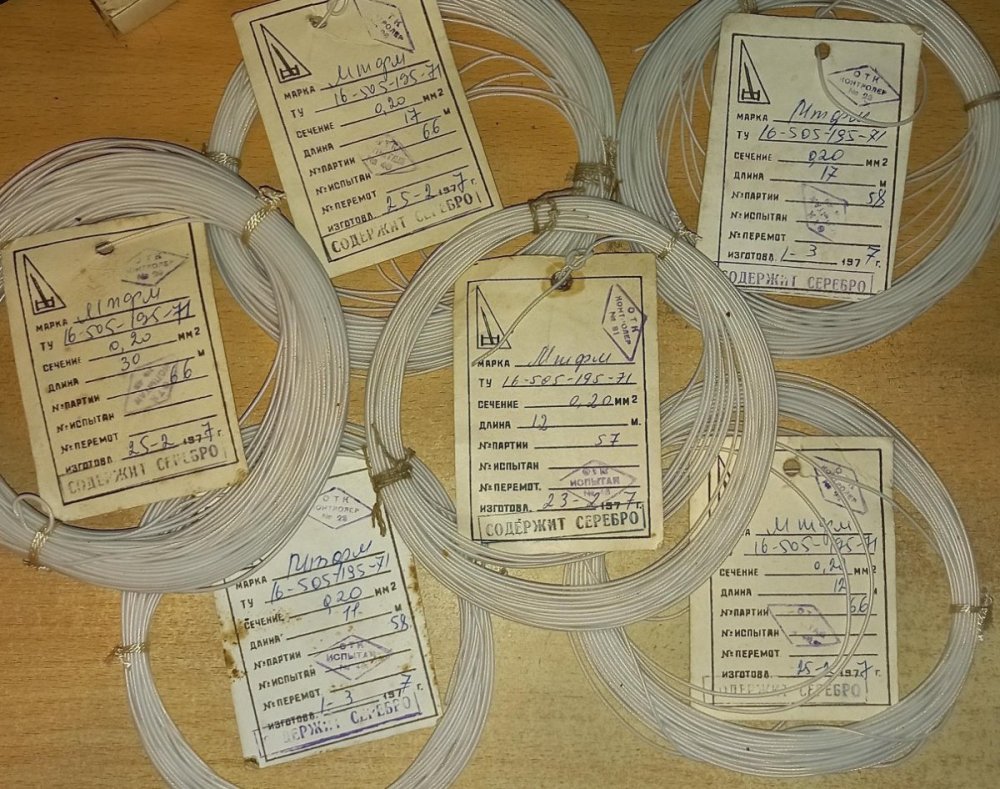 ОТК
КОНТРОЛЕР
МАРКА Мтфм
ТУ 16-505-195-71
СЕЧЕНИЕ 0,20 ММ2
ДЛИНА 17 М
№ПАРТИИ 66
№ИСПЫТАН
№ПЕРЕМОТ
ИЗГОТОВЛ. 25-2 1977г.
СОДЕРЖИТ СЕРЕБРО
ОТК
КОНТРОЛЕР
№ 28
МАРКА Мтфм
ТУ 16-505-195-71
СЕЧЕНИЕ 0,20 ММ2
ДЛИНА 17 М
№ПАРТИИ 58
№ИСПЫТАН
№ПЕРЕМОТ
ИЗГОТОВЛ. 1-3 1977г.
СОДЕРЖИТ СЕРЕБРО
МАРКА Мтфм
ТУ 16-505-195-71
СЕЧЕНИЕ 0,20 ММ2
ДЛИНА 30 М
№ПАРТИИ 66
№ИСПЫТАН
№ПЕРЕМОТ
ИЗГОТОВЛ. 25-2 1977г.
СОДЕРЖИТ СЕРЕБРО
ОТК
КОНТРОЛЕР
№ 81
МАРКА Мтфм
ТУ 16-505-195-71
СЕЧЕНИЕ 0,20 ММ2
ДЛИНА 12 М.
№ПАРТИИ 57
№ИСПЫТАН
ОТК
ИСПЫТАН
№ПЕРЕМОТ.
ИЗГОТОВЛ. 23-2 1977г.
СОДЕРЖИТ СЕРЕБРО
ОТК
КОНТРОЛЕР
№ 28
МАРКА Мтфм
ТУ 16-505-195-71
СЕЧЕНИЕ 0,20 ММ2
ДЛИНА М
№ПАРТИИ 58
№ИСПЫТАН
ОТК
ИСПЫТАН
№ПЕРЕМОТ
ИЗГОТОВЛ. 1-3 1977г.
ДЕРЖИТ СЕРЕБРО
Мтфм
16-505-195-71
СЕЧЕНИЕ 0,2 ММ2
ДЛИНА 12 М
№ПАРТИИ 66
№ИСПЫТАН
№ПЕРЕМОТ
ИЗГОТОВЛ. 25-2 1977г.
СОДЕРЖИТ СЕРЕБРО